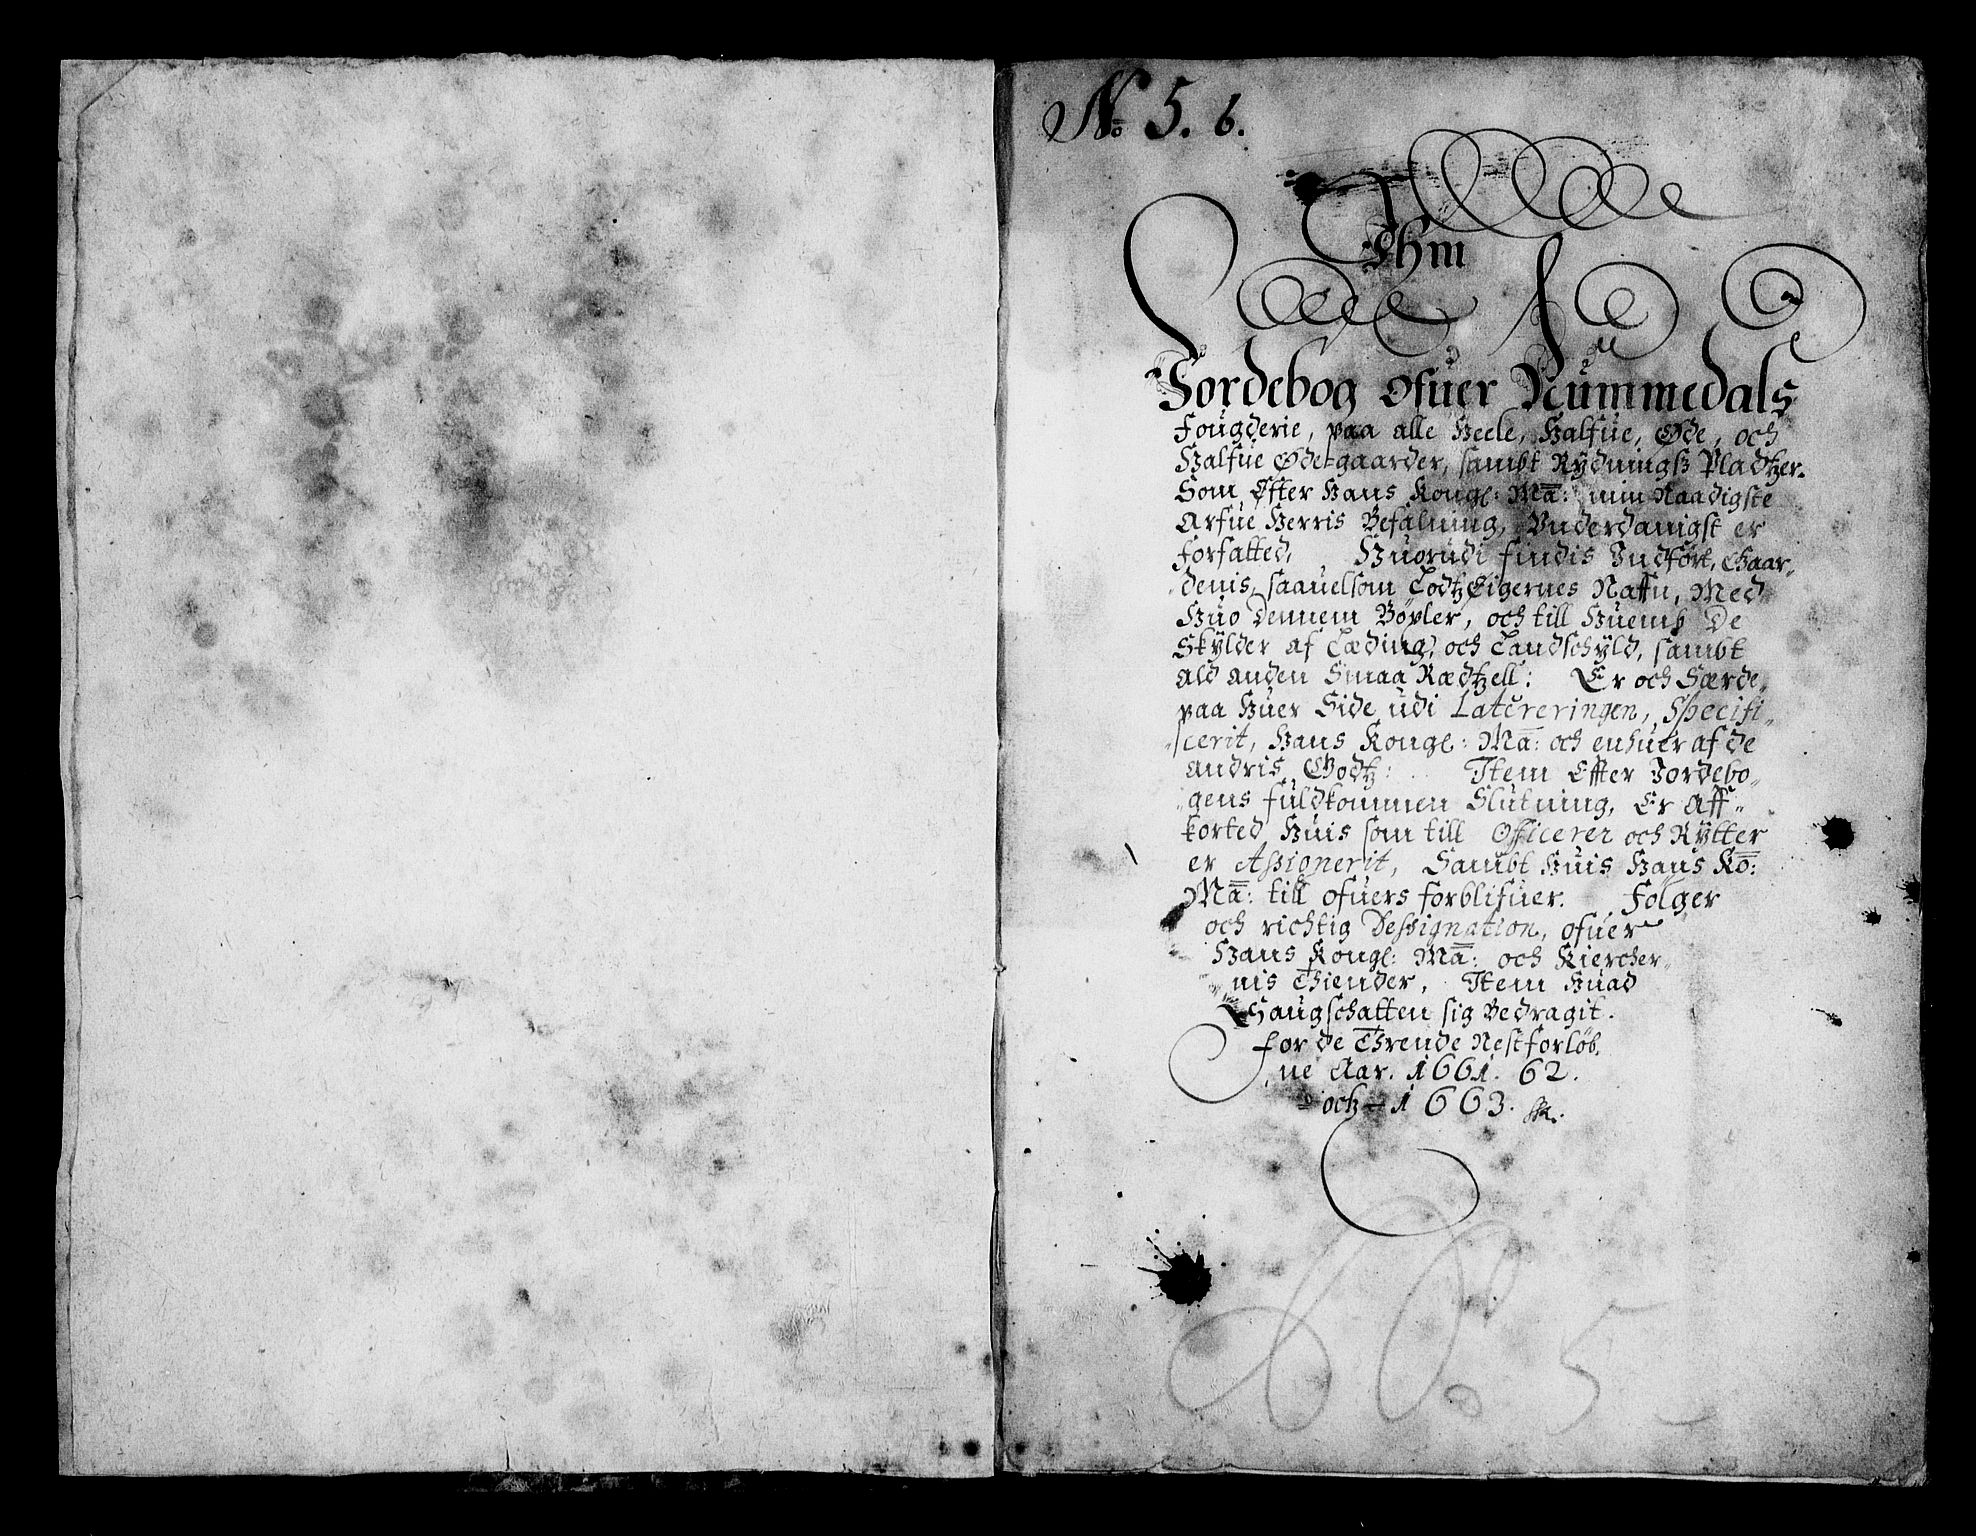 No 5. 6.
Ihm
Jordebog ofuer Nummedals
Fougderie, paa alle Heele, Halfue, Øde, och
Halfue Ødegaarder, sambt Rydningß Pladtzer.
Som Efter Hans Kongl: Ma: min Naadigste
Arfue Herris Befalning, Vnderdanigst er
forfatted, Huorudi findis Indført, Gaar-
denis, saauelsom Lodtz Eigernes Naffn, Med
Huo dennem Bøxler, och till Huemb De
Skylder af Læding, och Landschyld, sambt
ald anden Smaa Rædtzell: Er och Særde,,
paa Huer Side udi Latereringen, Specifi-
cerit, Hans Kongl: Ma: och enhuer af de
andris Godtz: Item Efter Jordebo-
gens fuldkommen Slutning, Er aff-
korted Huis som till Officerer och Rytter
er Aßignerit, Sambt Huis Hans Ko:
Ma: till ofuers forblifuer. Følger
och richtig Deßignation, ofuer
Hans Kongl: Ma: och Kiercher-
nis Thiender, Item Huad
Haugschatten sig Bedragit.
for de Thrende Nestforløb,
ne Aar. 1661. 62.
och 1663.
No 5